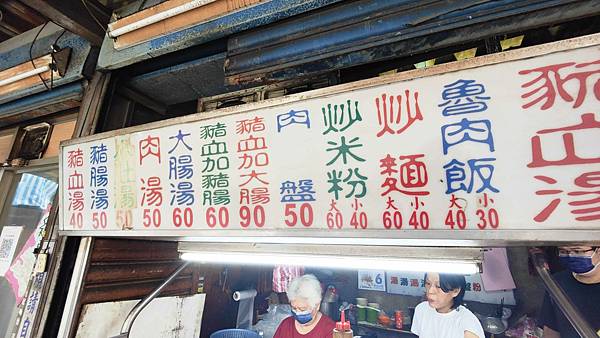 豬血湯 40
豬腸湯 50
50
肉湯 50
大腸湯 60
豬血加豬腸 60
豬血加大腸 90
肉盤 50
炒米粉 大60 小40
炒麵 大60 小40
魯肉飯 大40 小30
豬血湯